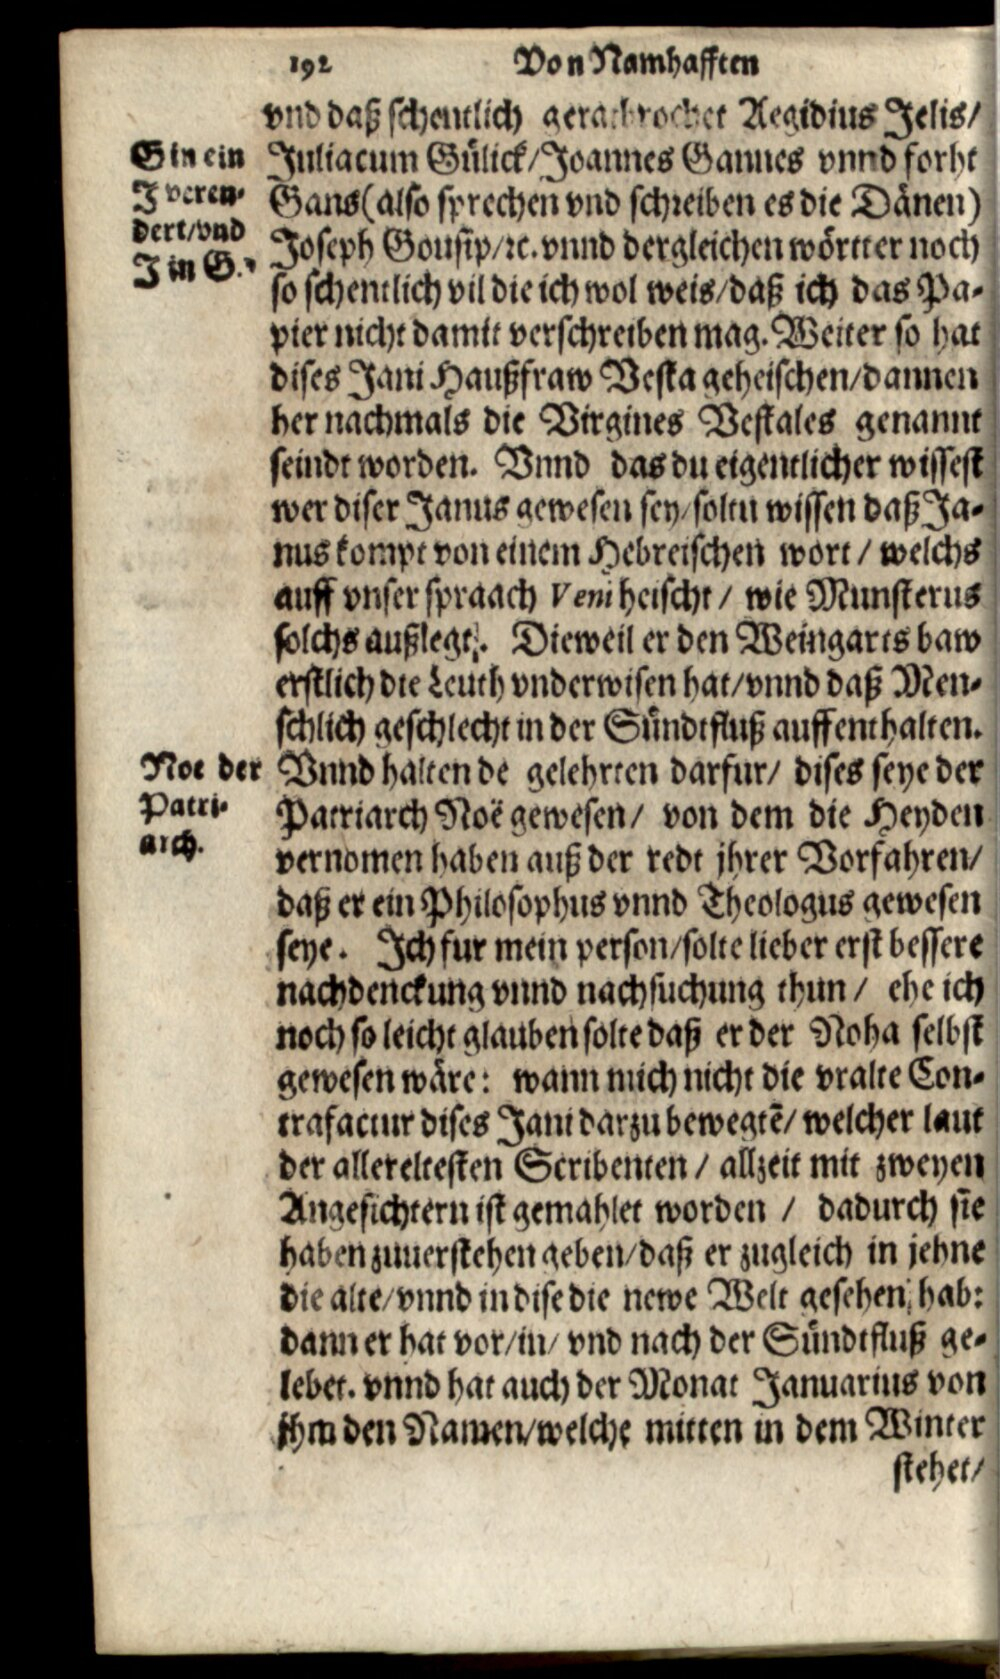 192 Von Namhafften
vnd daß schentlich geradbrochet Aegidius Jelis/
Juliacum Gülick/Joannes Gannes vnnd forht
Gans(also sprechen vnd schreiben es die Dänen)
Joseph Gousip/ꝛc. vnnd dergleichen wörtter noch
so schentlich vil die ich wol weis/daß ich das Pa-
pier nicht damit verschreiben mag. Weiter so hat
dises Jani Haußfraw Vesta geheischen/dannen
her nachmals die Virgines Vestales genannt
seindt worden. Vnnd das du eigentlicher wissest
wer diser Janus gewesen sey/soltu wissen daß Ja-
nus kompt von einem Hebreischen wort / welchs
auff vnser spraach Veni heischt / wie Munsterus
solchs außlegt. Dieweil er den Weingarts baw
erstlich die Leuth vnderwisen hat/vnnd daß Men-
schlich geschlecht in der Sündtfluß auffenthalten.
Vnnd halten de gelehrten darfur/ dises seye der
Patriarch Noë gewesen/ von dem die Heyden
vernomen haben auß der redt jhrer Vorfahren/
daß er ein Philosophus vnnd Theologus gewesen
seye. Ich fur mein person/solte lieber erst bessere
nachdenckung vnnd nachsuchung thun / ehe ich
noch so leicht glauben solte daß er der Noha selbst
gewesen wäre: wann mich nicht die vralte Con-
trafactur dises Jani darzu bewegtē/ welcher laut
der allereltesten Scribenten / allzeit mit zweyen
Angesichtern ist gemahlet worden / dadurch sie
haben zuuerstehen geben/daß er zugleich in jehne
die alte/vnnd in dise die newe Welt gesehen hab:
dann er hat vor/in/ vnd nach der Sündtfluß ge-
lebet. vnnd hat auch der Monat Januarius von
jhm den Namen/welche mitten in dem Winter
stehet/
G in ein
J veren-
dert/vnd
J in G.
Noe der
Patri-
arch.